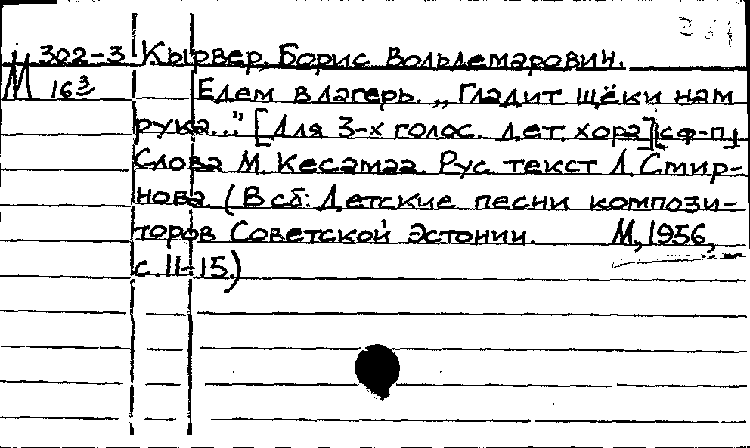 j 302-3 Кырвер, Борис Вольдемарович.
M 16³ Едем в лагерь. „Гладит щёки нам
рука..." [Для 3-х голос. дет. хора] с ф-п
Слова М. Кесамаа. Рус. текст Л. Смир-
нова (В сб: Детские песни компози-
торов Советской Эстонии. М, 1956,
с. 11-15.)